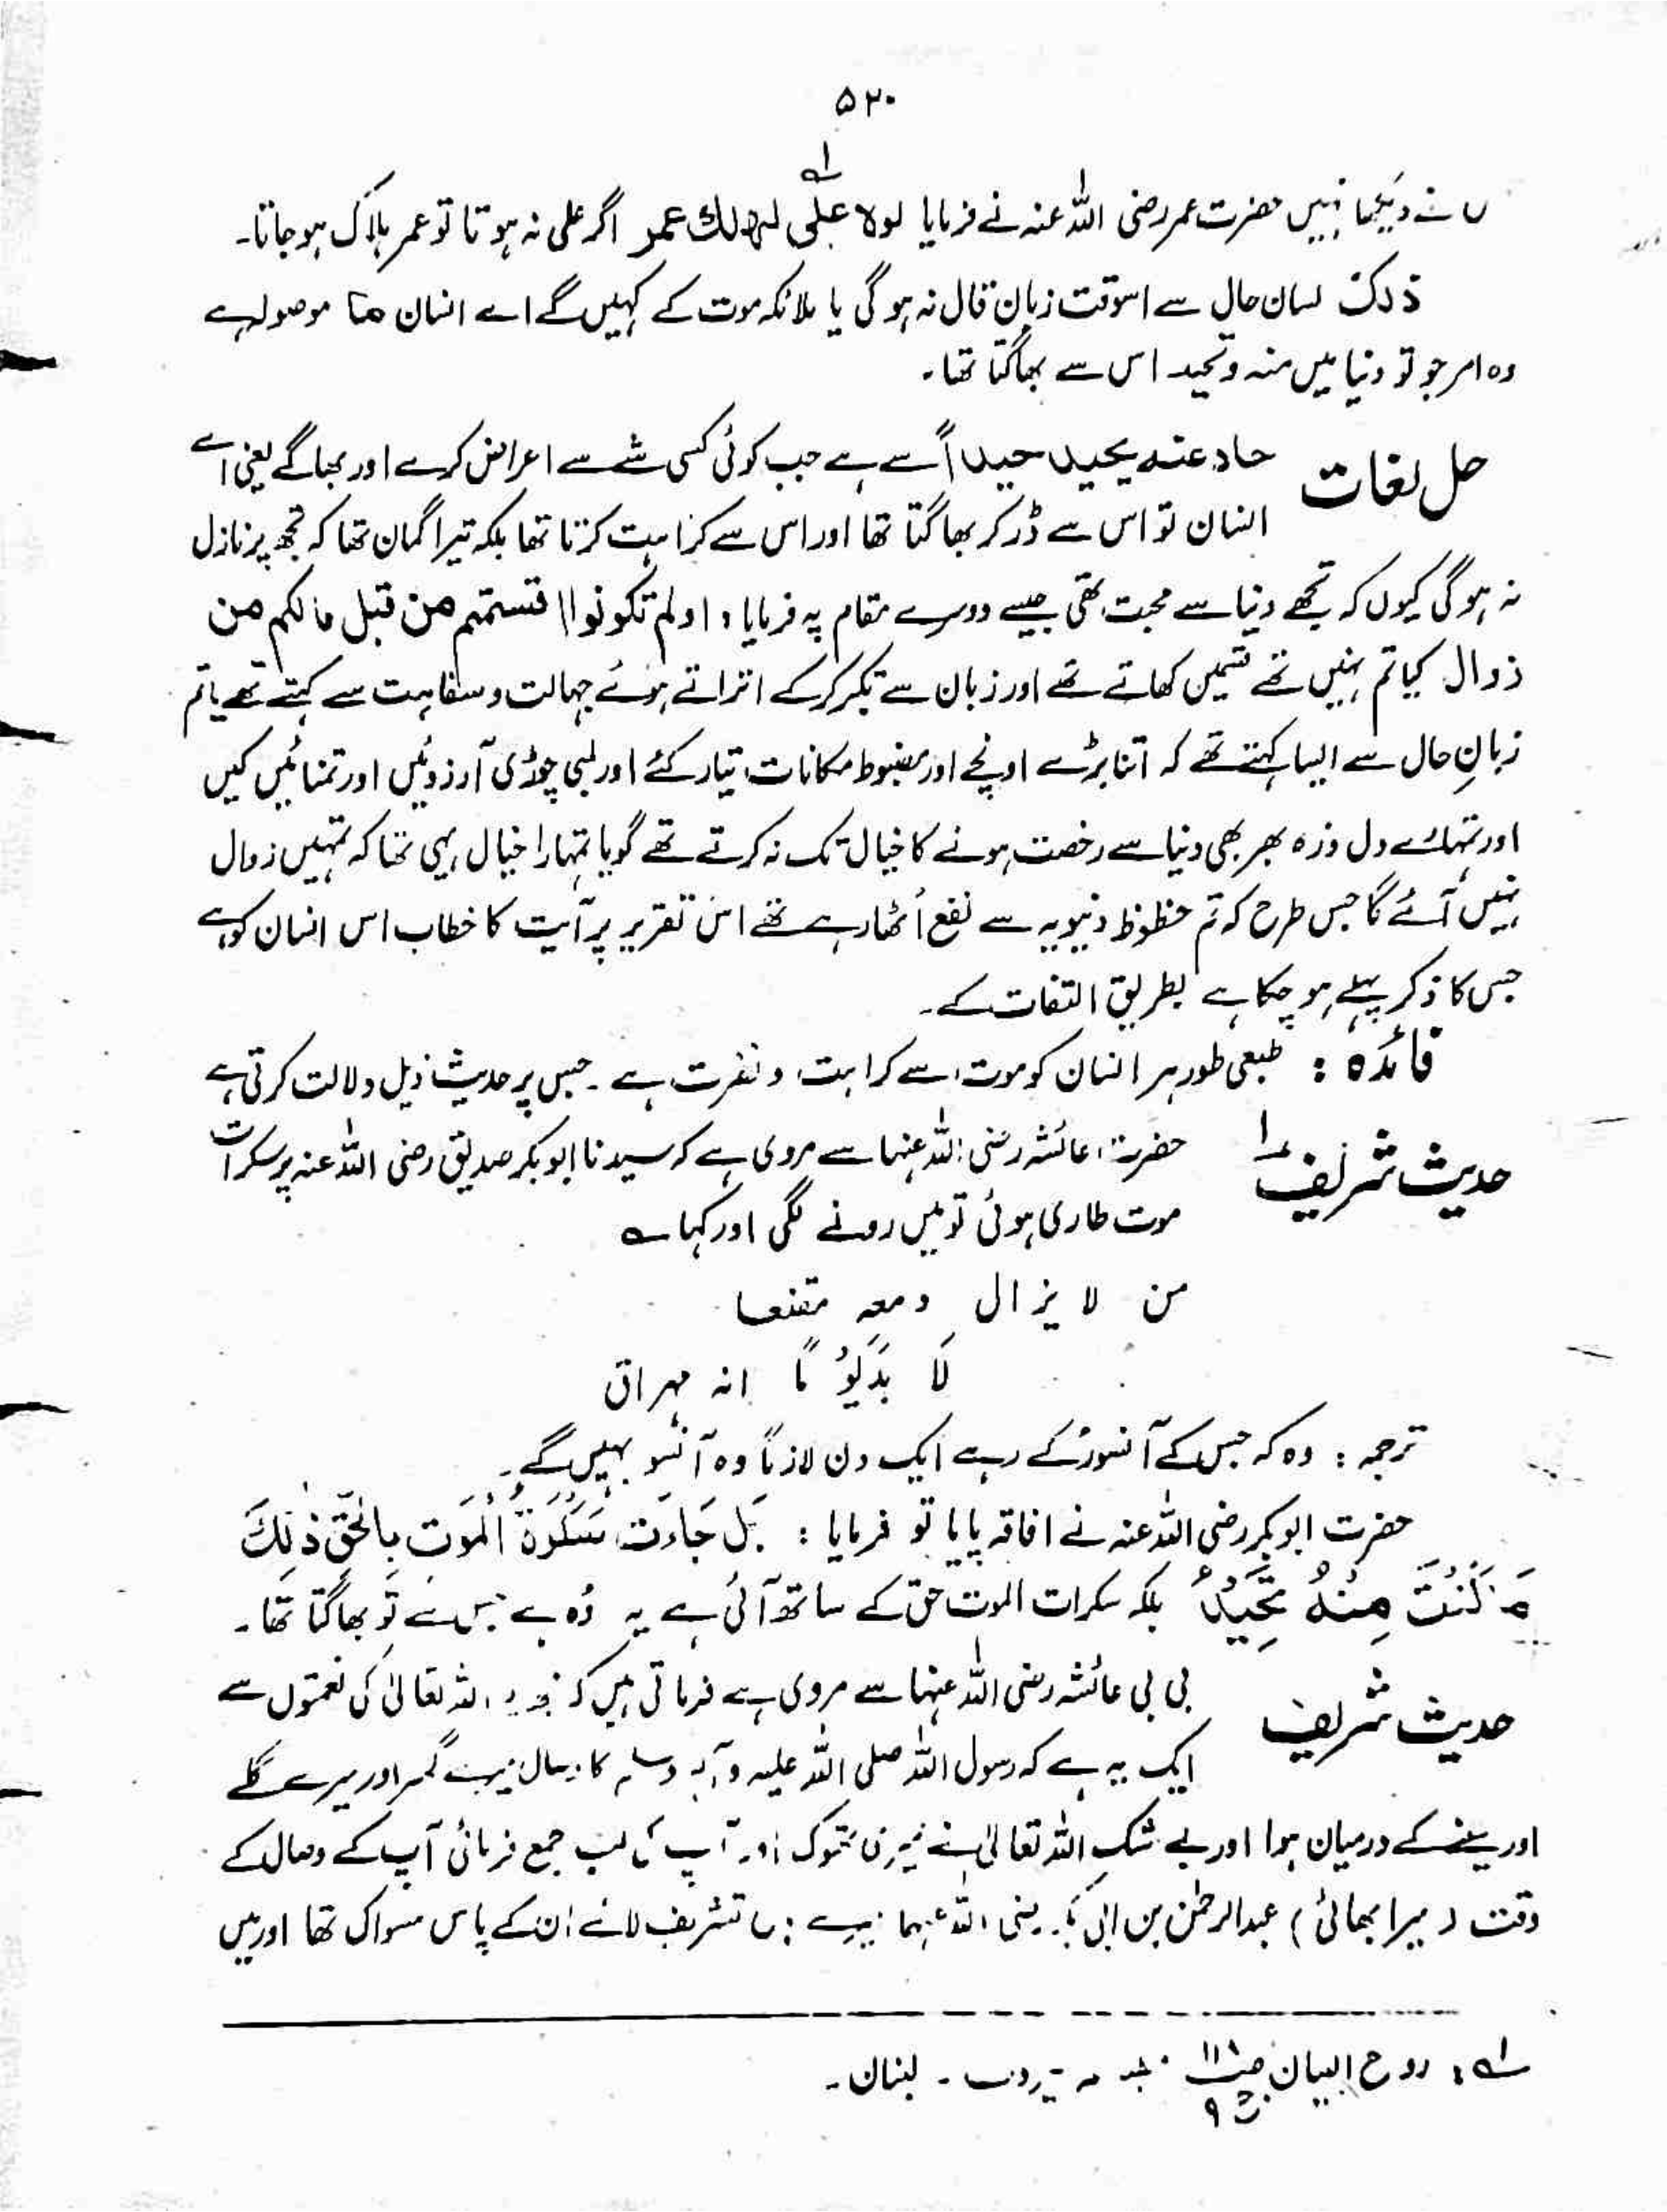 ۵۲۰
نے دیکھا نہیں حضرت عمر رضی اللہ عنہ نے فرمایا لولا علی لھلك عمر اگر علی نہ ہوتا تو عمر ہلاک ہو جاتا۔
ذلک لسان حال سے اسوقت زبان قال نہ ہو گی یا ملائکہ موت کے کہیں گے اے انسان ما موصولہ ہے
وہ امر جو تو دنیا میں منہ تحید اس سے بھاگتا تھا۔
حل لغات حاد عنہ یحید حیدا سے ہے جب کوئی کسی شے سے اعراض کرے اور بھاگے یعنی اے
انسان تو اس سے ڈر کر بھاگتا تھا اور اس سے کراہت کرتا تھا بلکہ تیرا گمان تھا کہ تجھ پر نازل
نہ ہو گی کیوں کہ تجھے دنیا سے محبت تھی جیسے دوسرے مقام پہ فرمایا اولم تکونوا اقستمتم من قبل مالکم من
زوال کیا تم نہیں تھے قسمیں کھاتے تھے اور زبان سے تکبر کرکے اتراتے ہوئے جہالت و سفاہت سے کہتے تھے یا تم
زبانِ حال سے ایسا کہتے تھے کہ اتنا بڑے اونچے اور مضبوط مکانات تیار کئے اور لمبی چوڑی آرزوئیں اور تمنائیں کیں
اور تمہارے دل ذرہ بھر بھی دنیا سے رخصت ہونے کا خیال تک نہ کرتے تھے گویا تمہارا خیال یہی تھا کہ تمہیں زوال
نہیں آئے گا جس طرح کہ تم حظوظ دنیویہ سے نفع اُٹھا رہے تھے اس تقریر پر آیت کا خطاب اس انسان کو ہے
جس کا ذکر پہلے ہو چکا ہے بطریق التفات کے۔
فائدہ : طبعی طور ہر انسان کو موت سے کراہت و نفرت ہے ۔ جس پر حدیث ذیل دلالت کرتی ہے
حدیث شریف ۱ حضرت عائشہ رضی اللہ عنہا سے مروی ہے کہ سیدنا ابو بکر صدیق رضی اللہ عنہ پر سکرات
موت طاری ہوئی تو میں رونے لگی اور کہا ؎
من لا یزال دمعہ مقنعا
انہ مہراق
ترجمہ : وہ کہ جس کے آنسو رُکے رہے ایک دن لازماً وہ آنسو بہیں گے۔
حضرت ابو بکر رضی اللہ عنہ نے افاقہ پایا تو فرمایا : بَل جَاءَت سَكْرَةُ الْمَوت بِالْحَقّ ذٰلِكَ
مَا كُنْتَ مِنْهُ تَحِيْدُ بلکہ سکرات الموت حق کے ساتھ آئی ہے یہ وُہ ہے جس سے تُو بھاگتا تھا۔
حدیث شریف بی بی عائشہ رضی اللہ عنہا سے مروی ہے فرماتی ہیں کہ اللہ تعالیٰ کی نعمتوں سے
ایک یہ ہے کہ رسول اللہ صلی اللہ علیہ وآلہ وسلم کا وصال میرے گھر اور میرے گلے
اور سینے کے درمیان ہوا اور بے شک اللہ تعالیٰ نے میری تھوک اور آپ کی لب جمع فرمائی آپ کے وصال کے
وقت (میرا بھائی) عبدالرحمٰن بن ابی بکر رضی اللہ عنہما میرے ہاں تشریف لائے اُن کے پاس مسواک تھا اور میں
۱ : روح البیان ج ۹ بیروت ۔ لبنان ۔